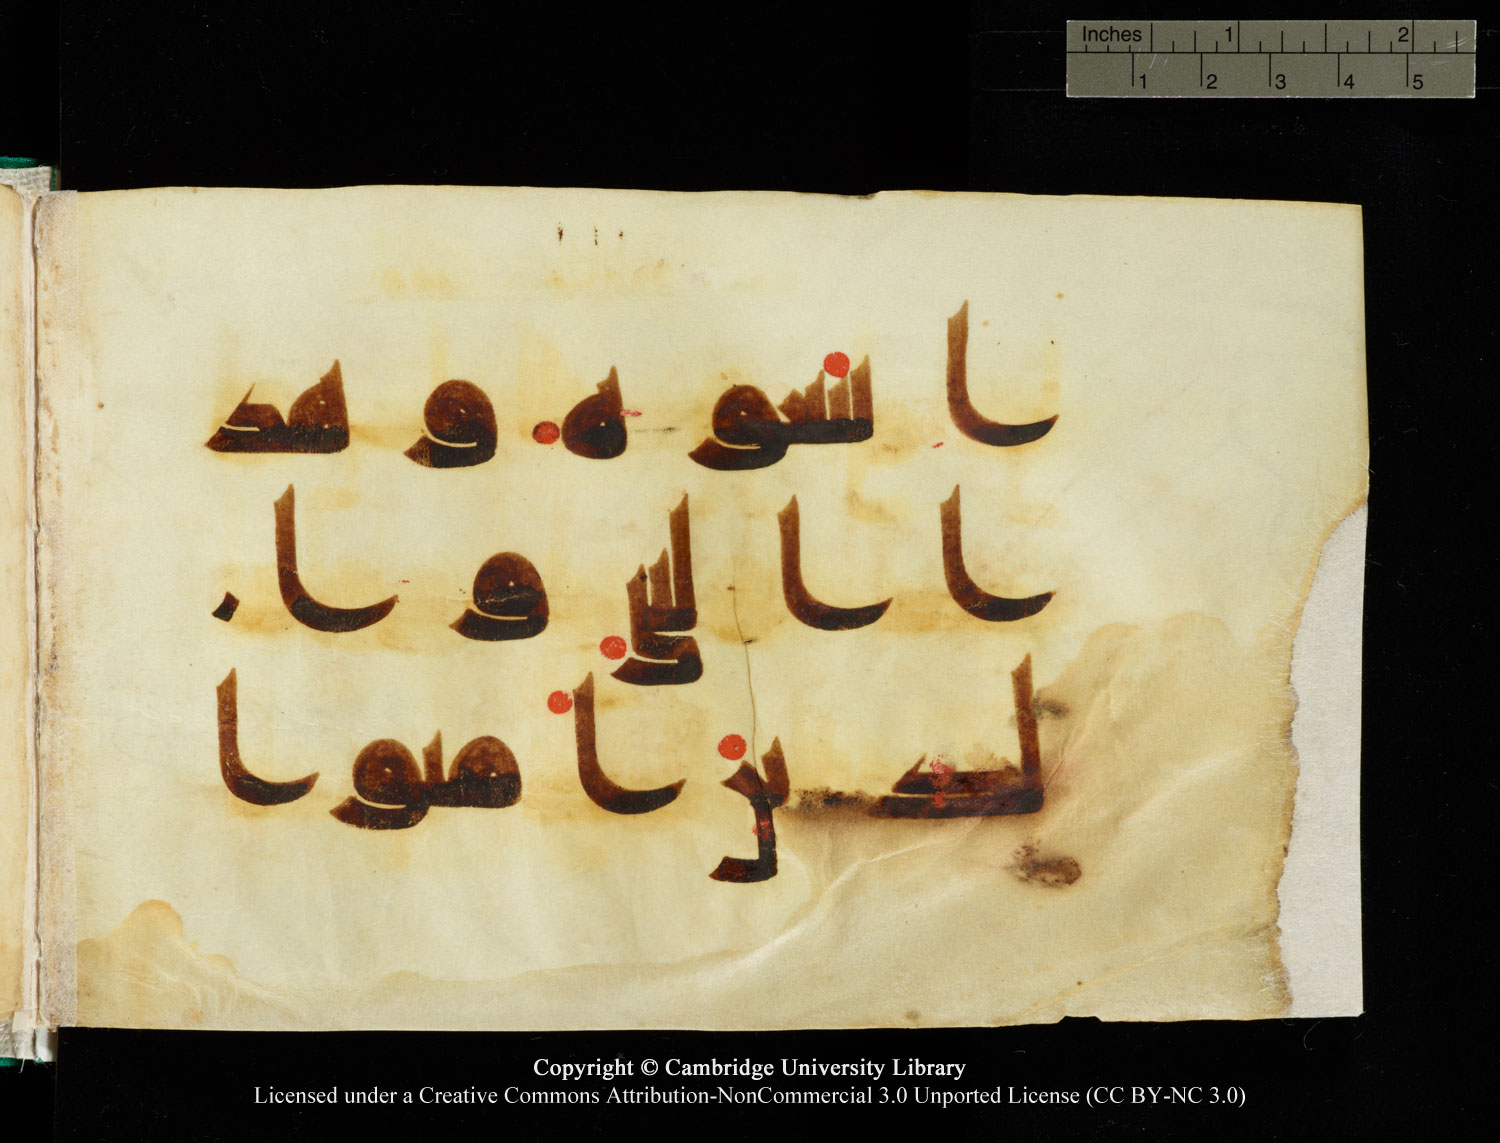 Inches 1 2
1 2 3 4 5
اتبعوه وهذ
ا النبى وا
لذين امنوا
Copyright © Cambridge University Library
Licensed under a Creative Commons Attribution-NonCommercial 3.0 Unported License (CC BY-NC 3.0)